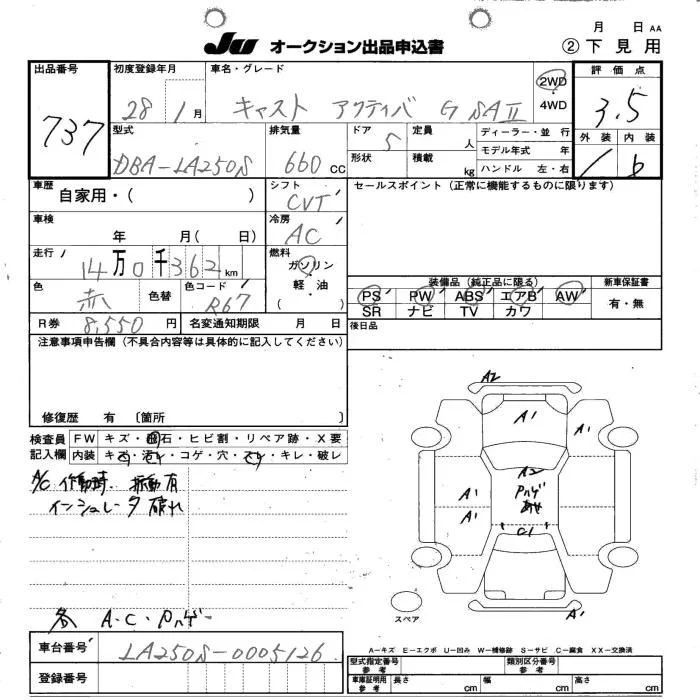 JU オークション出品申込書
月 日 AA
② 下見用
出品番号
737
初度登録年月
28 1月
車名・グレード
キャスト アクティバ G SAⅡ
2WD
・
4WD
評価点
3.5
外装 内装
1 b
型式
DBA-LA250S
排気量
660cc
ドア
5
形状
定員
人
積載
kg
ディーラー・並行
モデル年式 年
ハンドル 左・右
車歴
自家用・( )
シフト
CVT
セールスポイント (正常に機能するものに限ります)
車検
年 月( 日)
冷房
AC
走行
14万0千362km
燃料
ガソリン
・
軽油
・
( )
色
赤
色替
色コード
R67
装備品 (純正品に限る)
PS PW ABS エアB AW
SR ナビ TV カワ
新車保証書
有・無
R券 8,550円
名変通知期限 月 日
後日品
注意事項申告欄 (不具合内容等は具体的に記入してください)
修復歴 有 〔箇所 〕
検査員
記入欄
FW キズ・飛石・ヒビ割・リペア跡・X要
内装 キズ・汚れ・コゲ・穴・スレ・キレ・破レ
A/C 作動時 振動有
インシュレータ 破れ
各 A・C・Pハゲ
A2
A1
A1
A1
A1
A2
Pハゲ
C1
A1
スペア
A-キズ E-エクボ U-凹み W-補修跡 S-サビ C-腐食 XX-交換済
車台番号
LA250S-0005126
登録番号
型式指定番号
参考
類別区分番号
参考
車庫証明用
参考
長さ cm 幅 cm 高さ cm